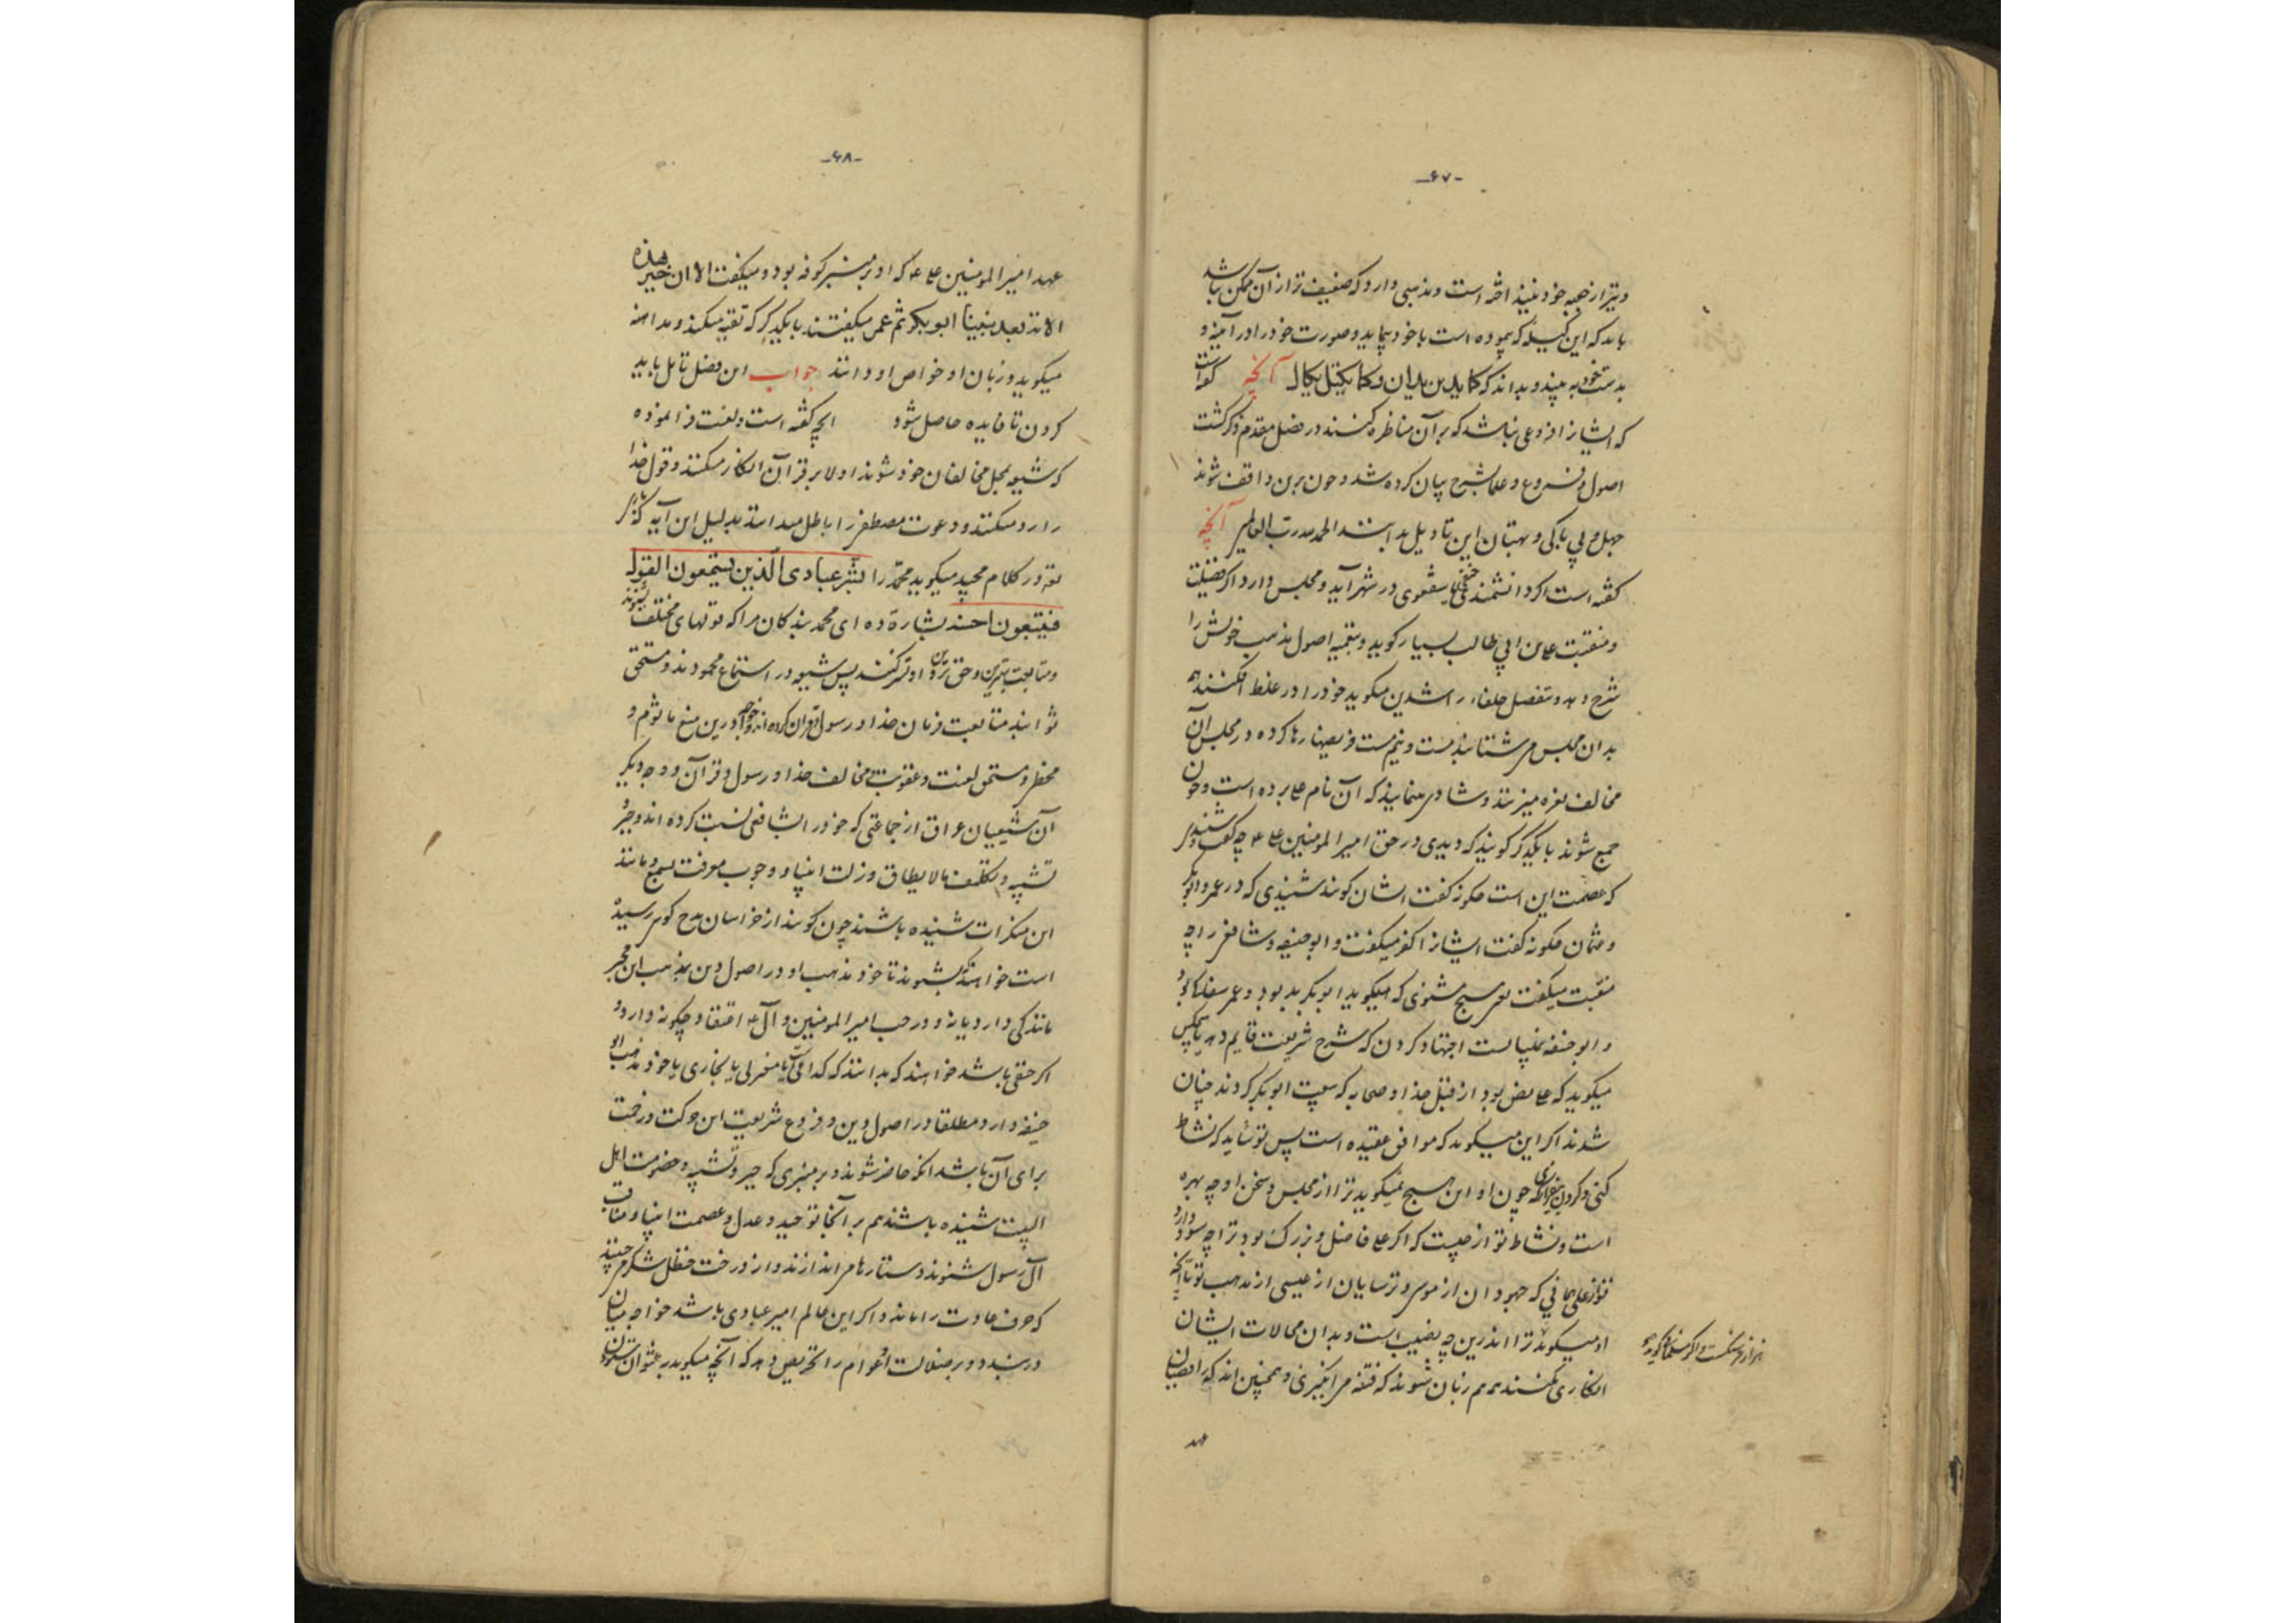 -۶۷-
و تیز از جعبه خود بینداخته است و مذهبی دارد که ضعیف‌تر از آن ممکن باشد
باید که این کیله که پیموده است با خود پیماید و صورت خود را در آینه و
بدست خود به بیند و بداند که کما یدین یدان و کما یکتل یکال آنچه گفته است
که ایشانرا فروعی نباشد که بر آن مناظره کنند در فصل مقدم ذکر گشت
اصول و فروع و علما بشرح بیان کرده شد و چون برین واقف شوند
جهل و بی باکی و بهتان این تاویل بدانند الحمد لله رب العالمین آنچه
گفته است اگر دانشمندی حنفی یا شفعوی در شهر آید و مجلس دارد اگر فضیلت
و منقبت علی بن ابی طالب بسیار گوید و بتقیه اصول مذهب خویش را
شرح دهد و تفضیل خلفاء راشدین میگوید خود را در غلط افکنند همه
بدان مجلس می شتابند مست و نیم مست فریضها رها کرده در مجلس آن
مخالف نعره میزنند و شادی مینمایند که آن نام علی برده است و چون
جمع شوند با یکدیگر گویند که دیدی در حق امیر المؤمنین علی ع چه گفت
که عصمت این است چگونه گفت ایشان گویند شنیدی که در عمر و ابوبکر
و عثمان چگونه گفت ایشانرا کفر میگفت و ابو حنیفه و شافعی را چه
منقبت میگفت نعم هیچ مشنوی که میگوید ابوبکر بد بود و عمر
و ابو حنیفه اجتهاد کردن که شرح شریعت قایم دهد یا هیچکس
میگوید که علی نص بود از قبل خدا و صحابه که بیعت ابوبکر کردند چنان
شدند اگر این میگوید که موافق عقیده است پس تو شاید که نشاط
کنی و گر چون او این هیچ نمیگوید ترا از مجلس و سخن او چه بهره
است و نشاط تو از چیست که اگر علی فاضل و بزرگ بود ترا چه سود دارد
تو از علی همانی که جهودان از موسی و ترسایان از عیسی از مذهب تو تا آنچه
او میگوید ترا اندرین چه نصیب است و بدان محالات ایشان
انکاری نکنند همه هم زبان شوند که فتنه می انگیزی و همچنین اند که رافضیان
عهد
-۶۸-
عهد امیر المؤمنین علی ع که او بر منبر کوفه بود و میگفت الا ان خیر هذه
الامة بعد نبینا ابو بکر ثم عمر میگفتند با یکدیگر که تقیه میکند و مداهنه
میگوید و زبان او خواص او دانند جواب این فصل تامل باید
کردن تا فایده حاصل شود انچه گفته است و لعنت فرا نموده
که شیعه بمجلس مخالفان خود شوند اولا بر قرآن انکار میکند و قول خدا
را رد میکند و دعوت مصطفی را باطل میداند بدلیل این آیه که باری
تع در کلام مجید میگوید محمد را بشر عبادی الذین یستمعون القول
فیتبعون احسنه بشارة ده ای محمد بندگان مرا که قولهای مختلف بشنوند
و متابعت بهترین و حق ترین او کنند پس شیعه در استماع محمودند و مستحق
ثواب متابعت فرمان خدا و رسول و قران کرده اند و خواجه درین منع ماثوم و
مخطی و مستحق لعنت و عقوبت و مخالف خدا و رسول و قرآن و وجه دیگر
آن شیعیان عراق از جماعتی که خود را شافعی نسبت کرده اند و جبر و
تشبیه و تکلیف ما لا یطاق و زلت انبیا و وجوب معرفت بسمع و مانند
این منکرات شنیده باشند چون گویند از خراسان رسیده
است خواهند که بشنوند تا خود مذهب او در اصول دین بمذهب این مجبر
مانندگی دارد یا نه و در حب امیر المؤمنین و آل ع اعتقاد چگونه دارد و
اگر حنفی باشد خواهند که بدانند که کرامی یا معتزلی یا نجاری یا خود مذهب ابو
حنیفه دارد مطلقا در اصول دین و فروع شریعت این حرکت و رغبت
برای آن باشد انکه حاضر شوند و بر منبری که جبر و تشبیه و خصومت اهل
البیت شنیده باشند هم بر آنجا توحید و عدل و عصمت انبیا و مناقب
آل رسول شنوند دستارها می اندازند و از درخت حنظل شکر می چینند
که خرق عادت را ماند و اگر این عالم امیر عبادی باشد خواجه میان
در بندد و بر ضلالت عوام را تحریض دهد که آنچه میگوید بر عثوان